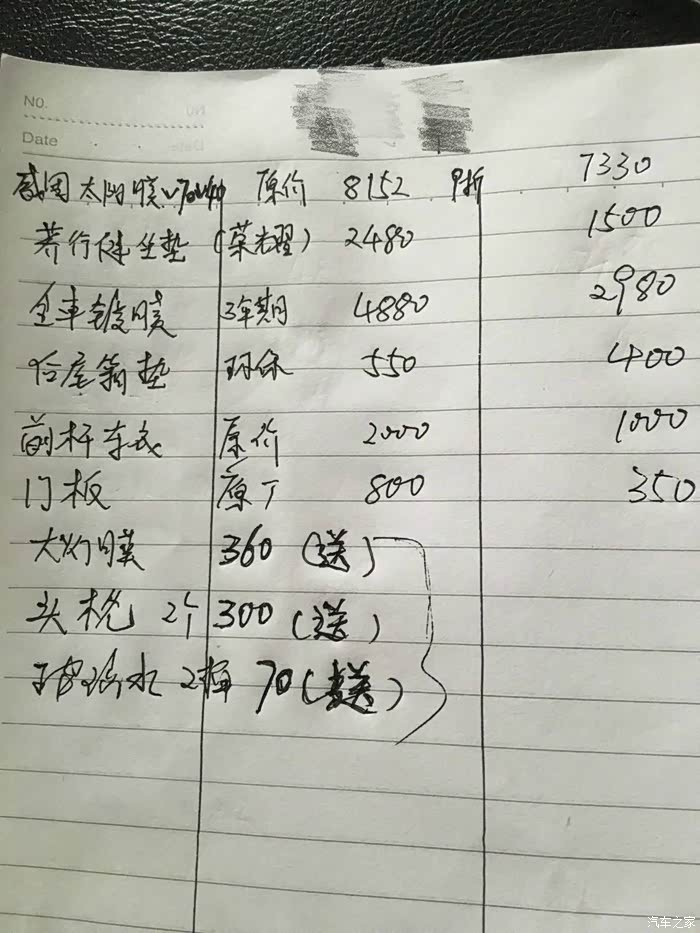 No.
Date
威固太阳膜V70V40 原价 8152 9折 7330
养行健坐垫 (荣耀) 2480 1500
全车镀膜 3年期 4880 2980
后尾箱垫 环保 550 400
前杆车衣 原价 2000 1000
门板 原厂 800 350
大灯膜 360 (送)
头枕 2个 300 (送)
玻璃水 2 70 (送)
汽车之家